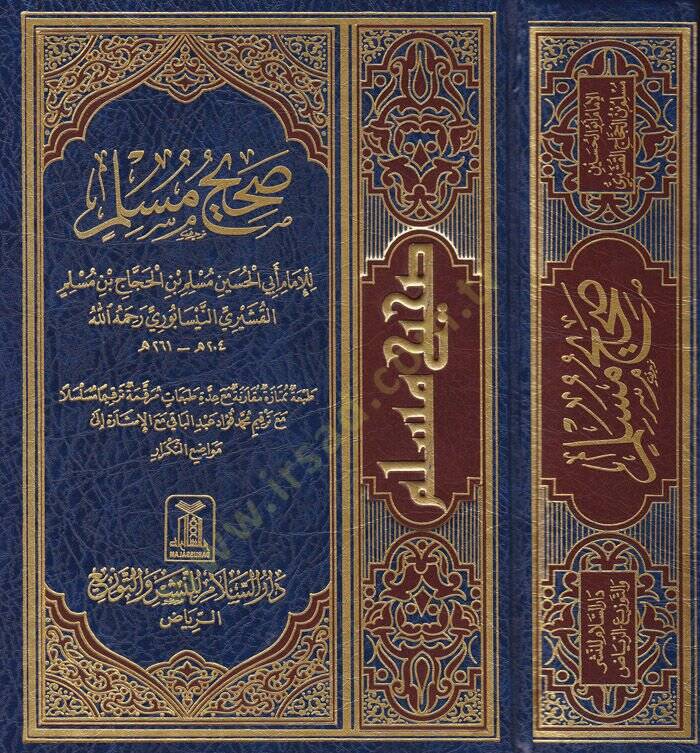 صَحِيحُ مُسْلِمٍ
لِلإِمَامِ أَبِي الْحُسَيْنِ مُسْلِمِ بْنِ الْحَجَّاجِ بْنِ مُسْلِمٍ
القُشَيْرِيِّ النَّيْسَابُورِيِّ رَحِمَهُ اللهُ
٢٠٤هـ - ٢٦١هـ
طبعة ممتازة مقارنة مع عدة طبعات مرقمة ترقيما مسلسلا
مع ترقيم محمد فؤاد عبد الباقي مع الإشارة إلى
مواضع التكرار
DARUSSALAM
دار السلام للنشر والتوزيع
الرياض
صحيح مسلم
الإمام أبو الحسين
مسلم بن الحجاج القشيري
صَحِيحُ مُسْلِمٍ
دار السلام للنشر
والتوزيع الرياض